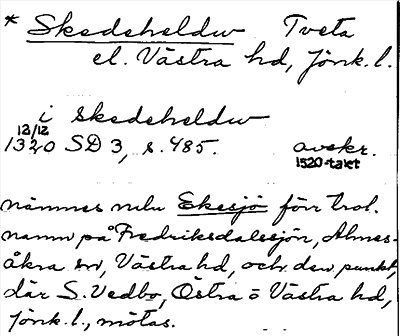 * Skedeheldw Tveta
el. Västra hd, Jönk. l.
i skedeheldw
12/12
1320 SD 3, s. 485. avskr.
1520-talet
nämnes mellan Ekesjö förr trol.
namn på Fredriksdalasjön, Almes-
åkra sn, Västra hd, och den punkt,
där S. Vedbo, Östra o Västra hd,
Jönk. l., mötas.